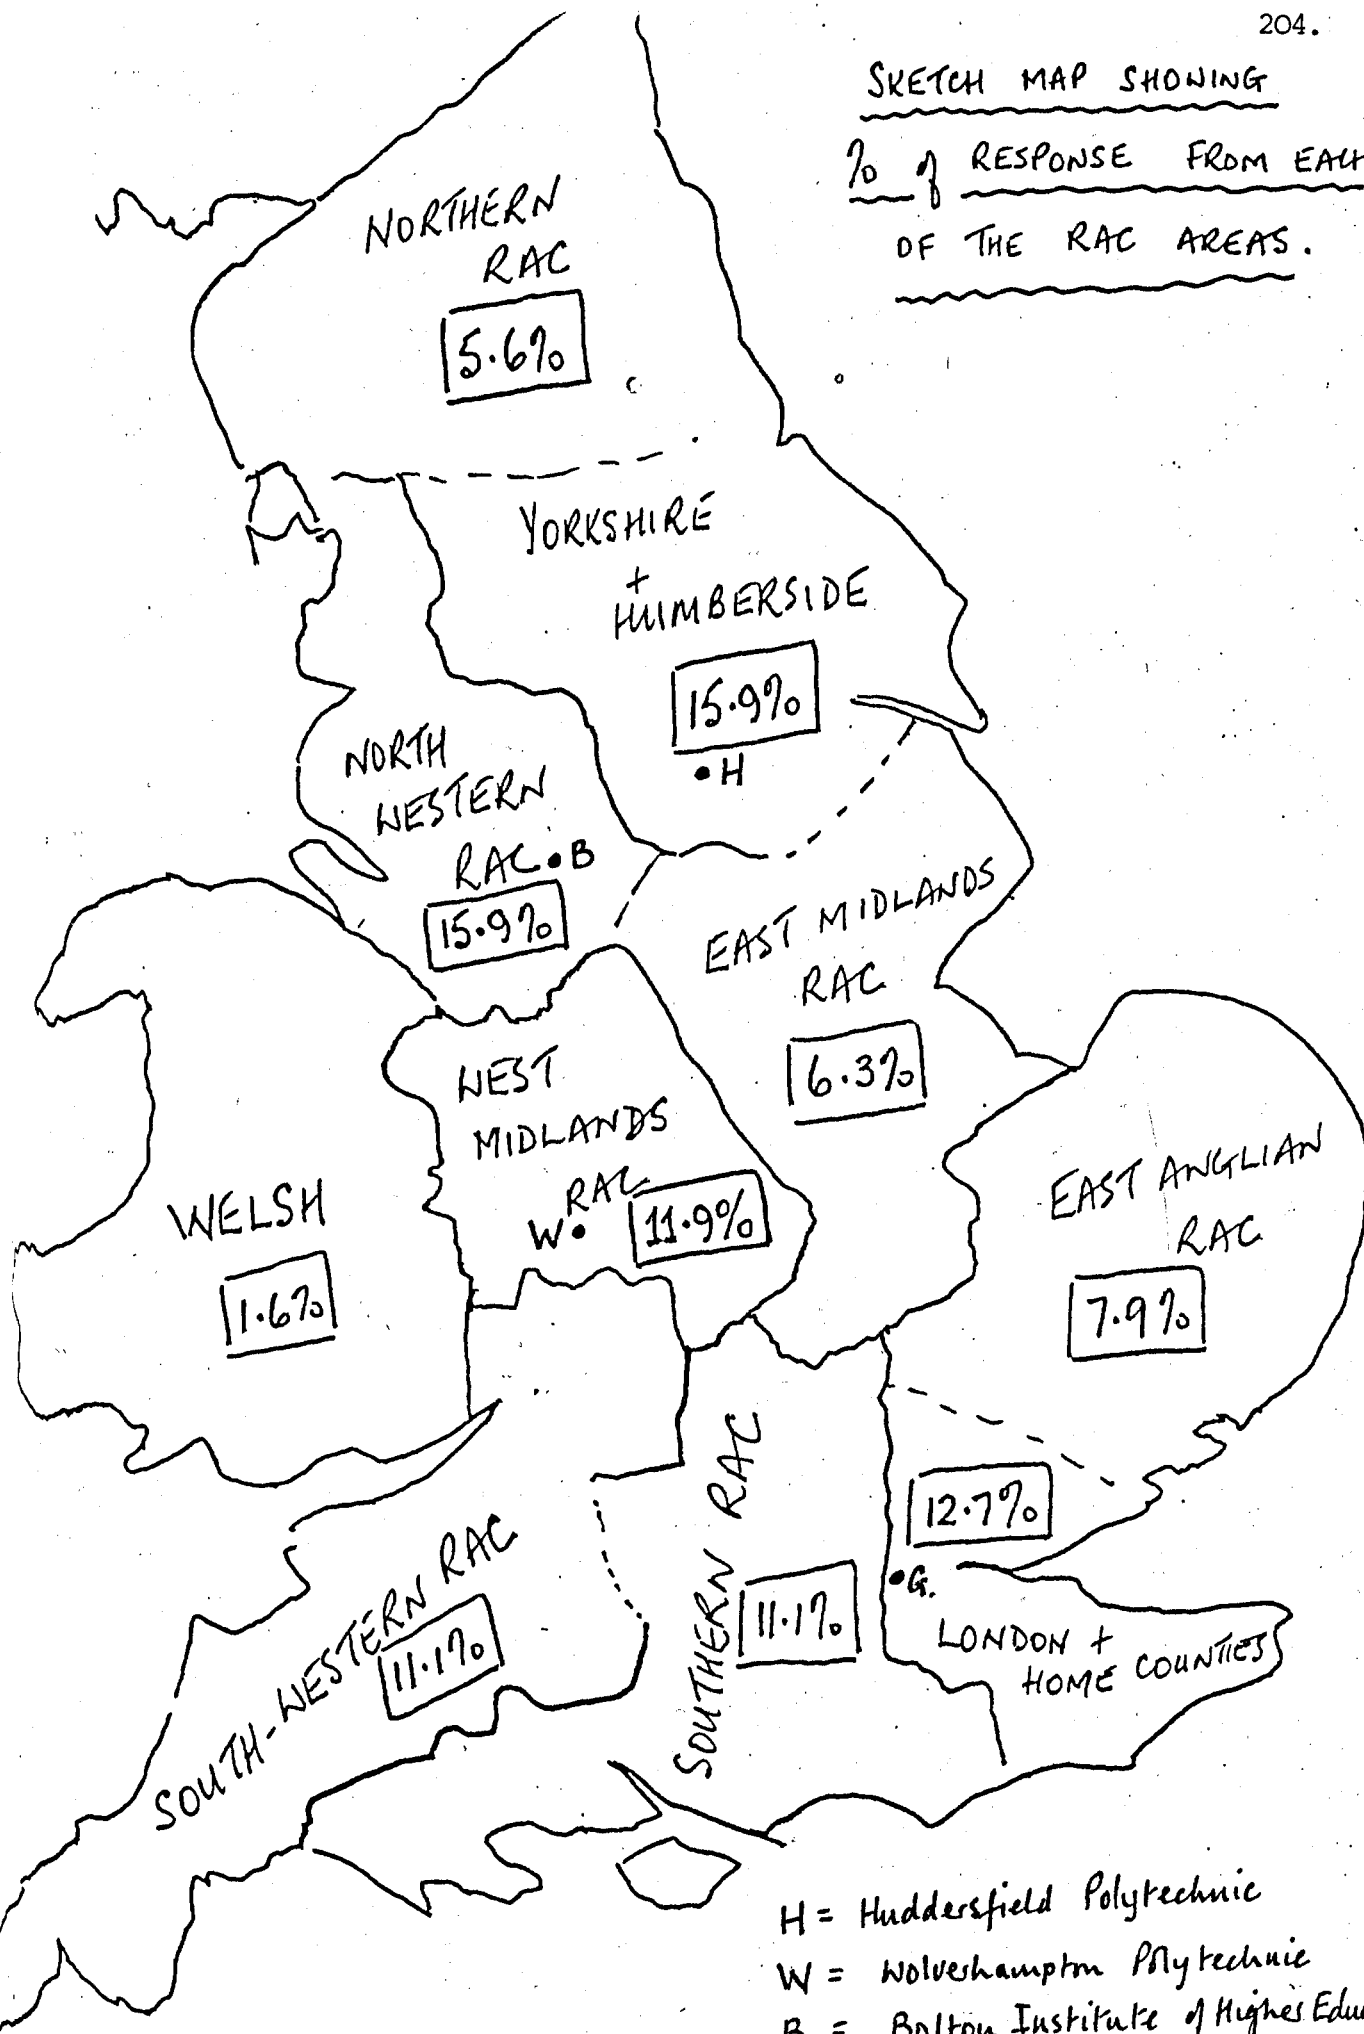 204.
SKETCH MAP SHOWING
% of RESPONSE FROM EACH
OF THE RAC AREAS.
NORTHERN
RAC
5.6%
YORKSHIRE
+
HUMBERSIDE
15.9%
•H
NORTH
WESTERN
RAC •B
15.9%
EAST MIDLANDS
RAC
6.3%
WEST
MIDLANDS
RAC
W• 11.9%
WELSH
1.6%
EAST ANGLIAN
RAC
7.9%
12.7%
•G.
LONDON +
HOME COUNTIES
SOUTHERN RAC
11.1%
SOUTH-WESTERN RAC
11.1%
H = Huddersfield Polytechnic
W = Wolverhampton Polytechnic
B = Bolton Institute of Higher Edu